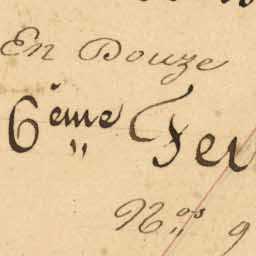 En Douze
6ème Feu
Nos 9